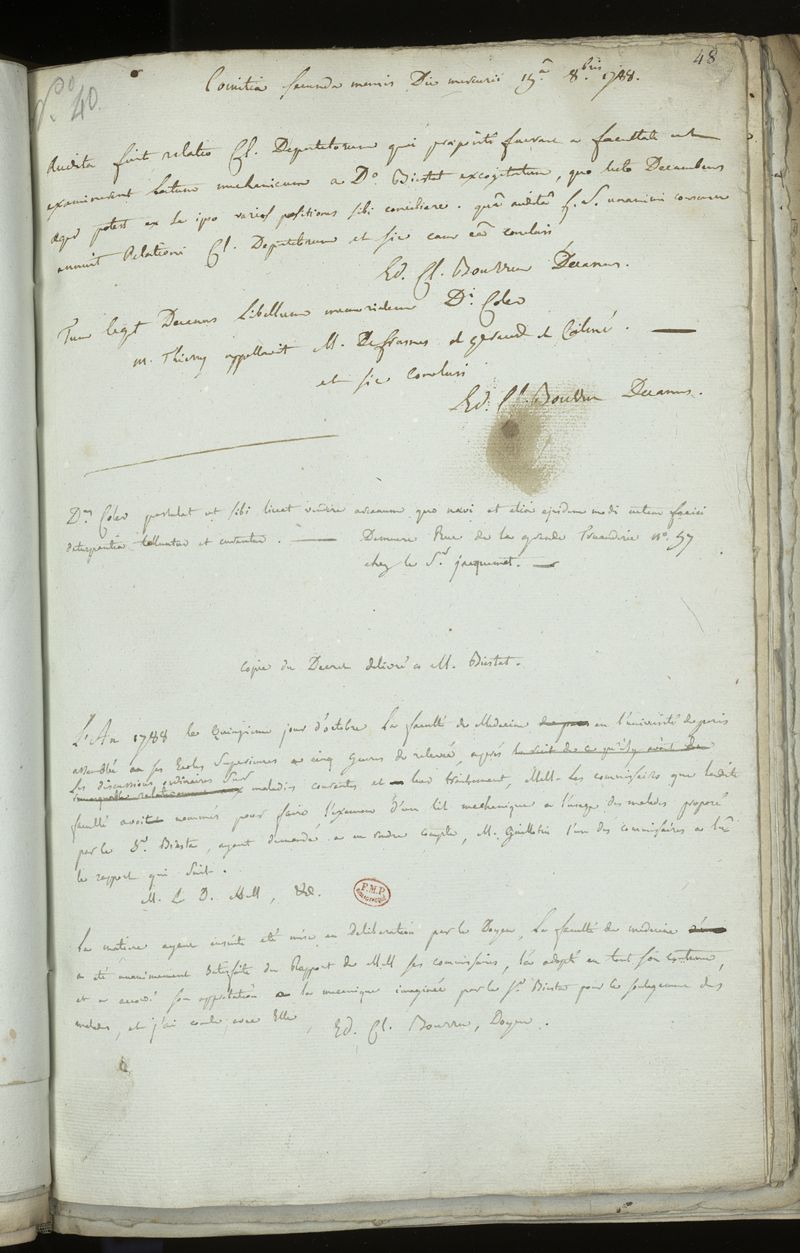 48
N° 40.
Comitia secunda mensis Die mercurii 15.a 8.bris 1788.
Audita fuit relatio Cl. Deputatorum qui præpositi fuerant a facultate ut
examinarent lectum mechanicum a D° Biestat excogitatum, quo lecto Decumbens
æger potest ex se ipso varias positiones sibi conciliare. quâ auditâ S. F. unanimi consensu
annuit Relationi Cl. Deputatorum et sic cum eâ conclusi
Ed. Cl. Bourru Decanus.
Tum legit Decanus libellum memorialem D.i Coleo
M. Thierry appellavit M. Defrasnes et geraud et Coliné.
et sic conclusi
Ed. Cl. Bourru Decanus.
D.us Coleo postulat ut sibi liceat vendere arcanum quo nævi et aliæ ejusdem modi cuteæ faciei
tolluntur et curantur. Demeure Rue de la grande Truanderie n°. 57
chez le S.r jacquemet.
Copie du Decret delivré a M. Biestat.
L'An 1788 le Quinzieme jour d'octobre La faculté de Medecine en l'université de paris
assemblée en ses Ecoles Superieures a cinq heures de relevée, après
Les discussions ordinaires sur maladies courantes et leur traitement, MM. Les commissaires que ladite
faculté avoit nommés pour faire l'examen d'un lit mechanique a l'usage des malades proposé
par le S.r Biesta, ayant demandé a en rendre compte, M. Guillotin l'un des commissaires a lu
le rapport qui suit.
M. L. D. MM, &c.
La matiere ayant ensuite eté mise en deliberation par le Doyen, La faculté de medecine
a été unanimement satisfaite du Rapport de MM ses commissaires, l'a adopté en tout son contenu,
et a accordé son approbation a la mecanique imaginée par le S.r Biestat pour le soulagement des
malades, et j'ai conclu avec Elle,
Ed. Cl. Bourru, Doyen.
F.M.P.